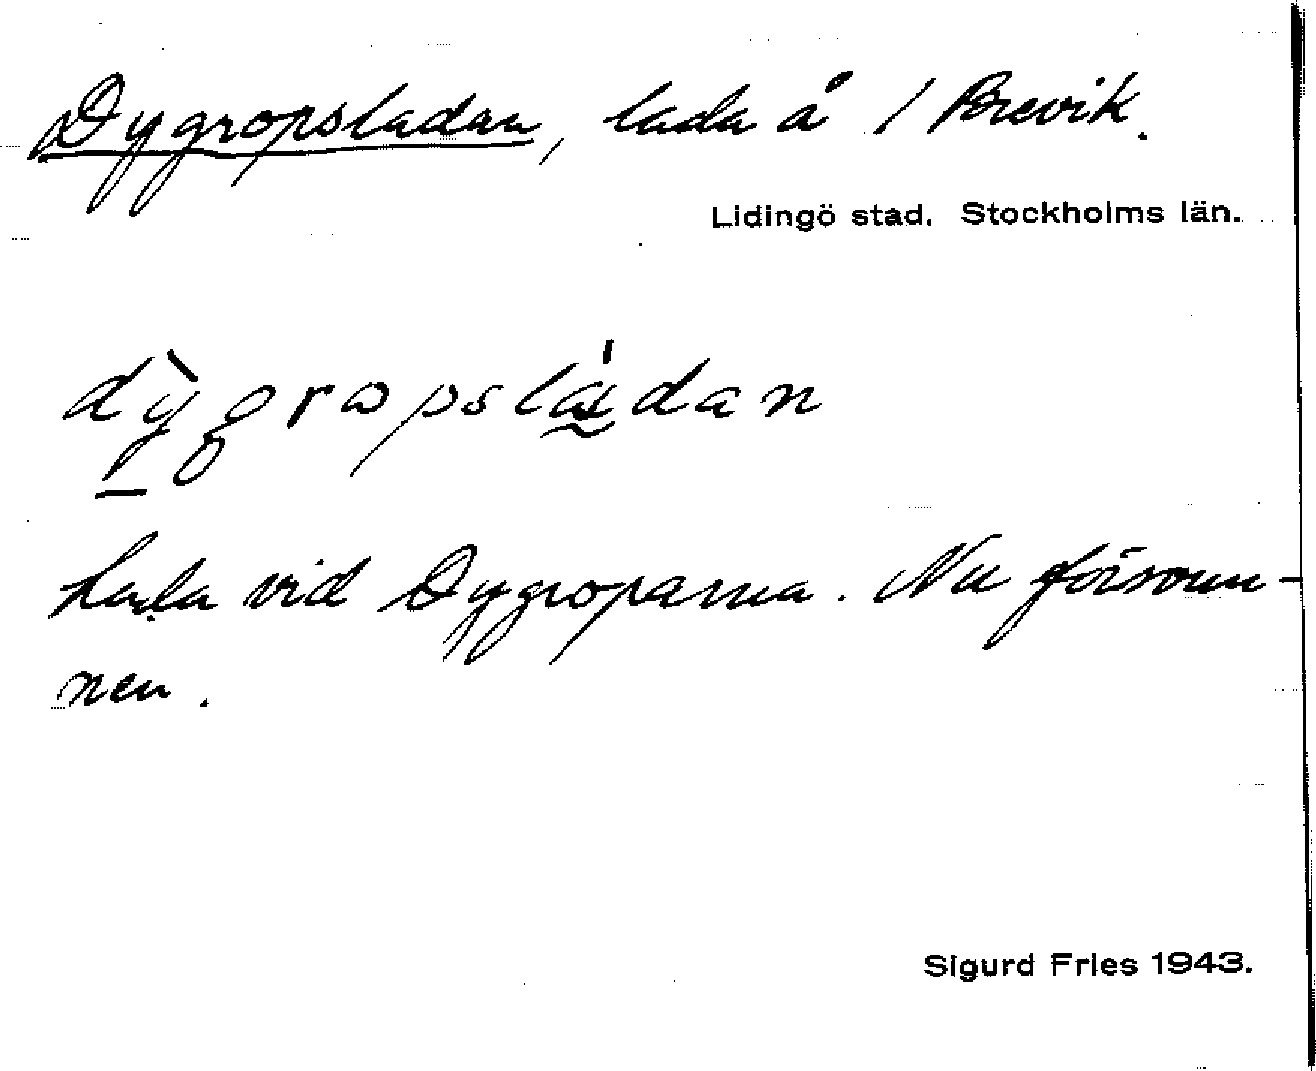 Dygropsladan, lada å / Brevik.
Lidingö stad. Stockholms län.
dỳgropsládan
Lada vid Dygroparna. Nu försvun-
nen.
Sigurd Fries 1943.